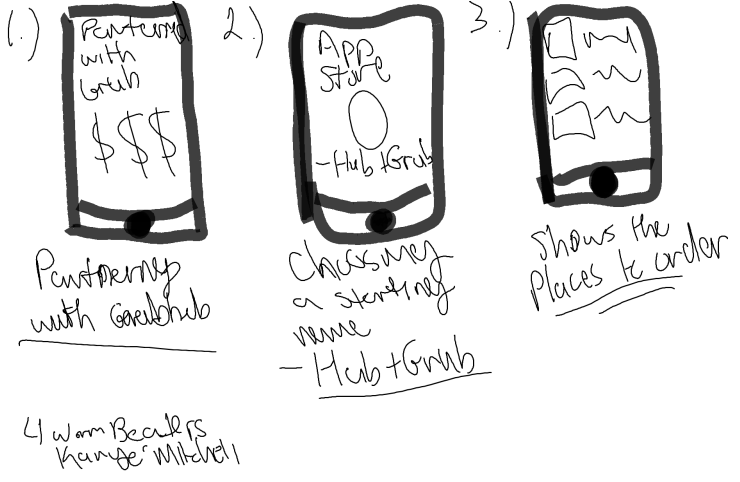 1.)
Partnering
with
Grub
$$$
Partnering
with Grubhub
2.)
App
Store
-Hub+Grub
Choosing
a starting
name
- Hub+Grub
3.)
Shows the
Places to order
4
Kanye Mitchell